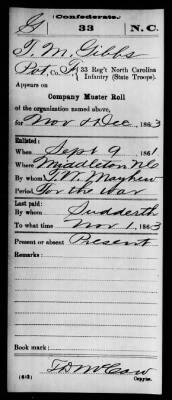 (Confederate.)
G 33 N.C.
T. M. Gibbs
Pvt, Co. F, 33 Reg't North Carolina
Infantry (State Troops).
Appears on
Company Muster Roll
of the organization named above,
for Nov & Dec, 1863
Enlisted:
When Sept 9, 1861
Where Middleton NC
By whom T. W. Mayhew
Period For the war
Last paid:
By whom Sudderth
To what time Nov 1, 1863
Present or absent Present
Remarks:
Book mark:
(642) T D McCaw
Copyist.